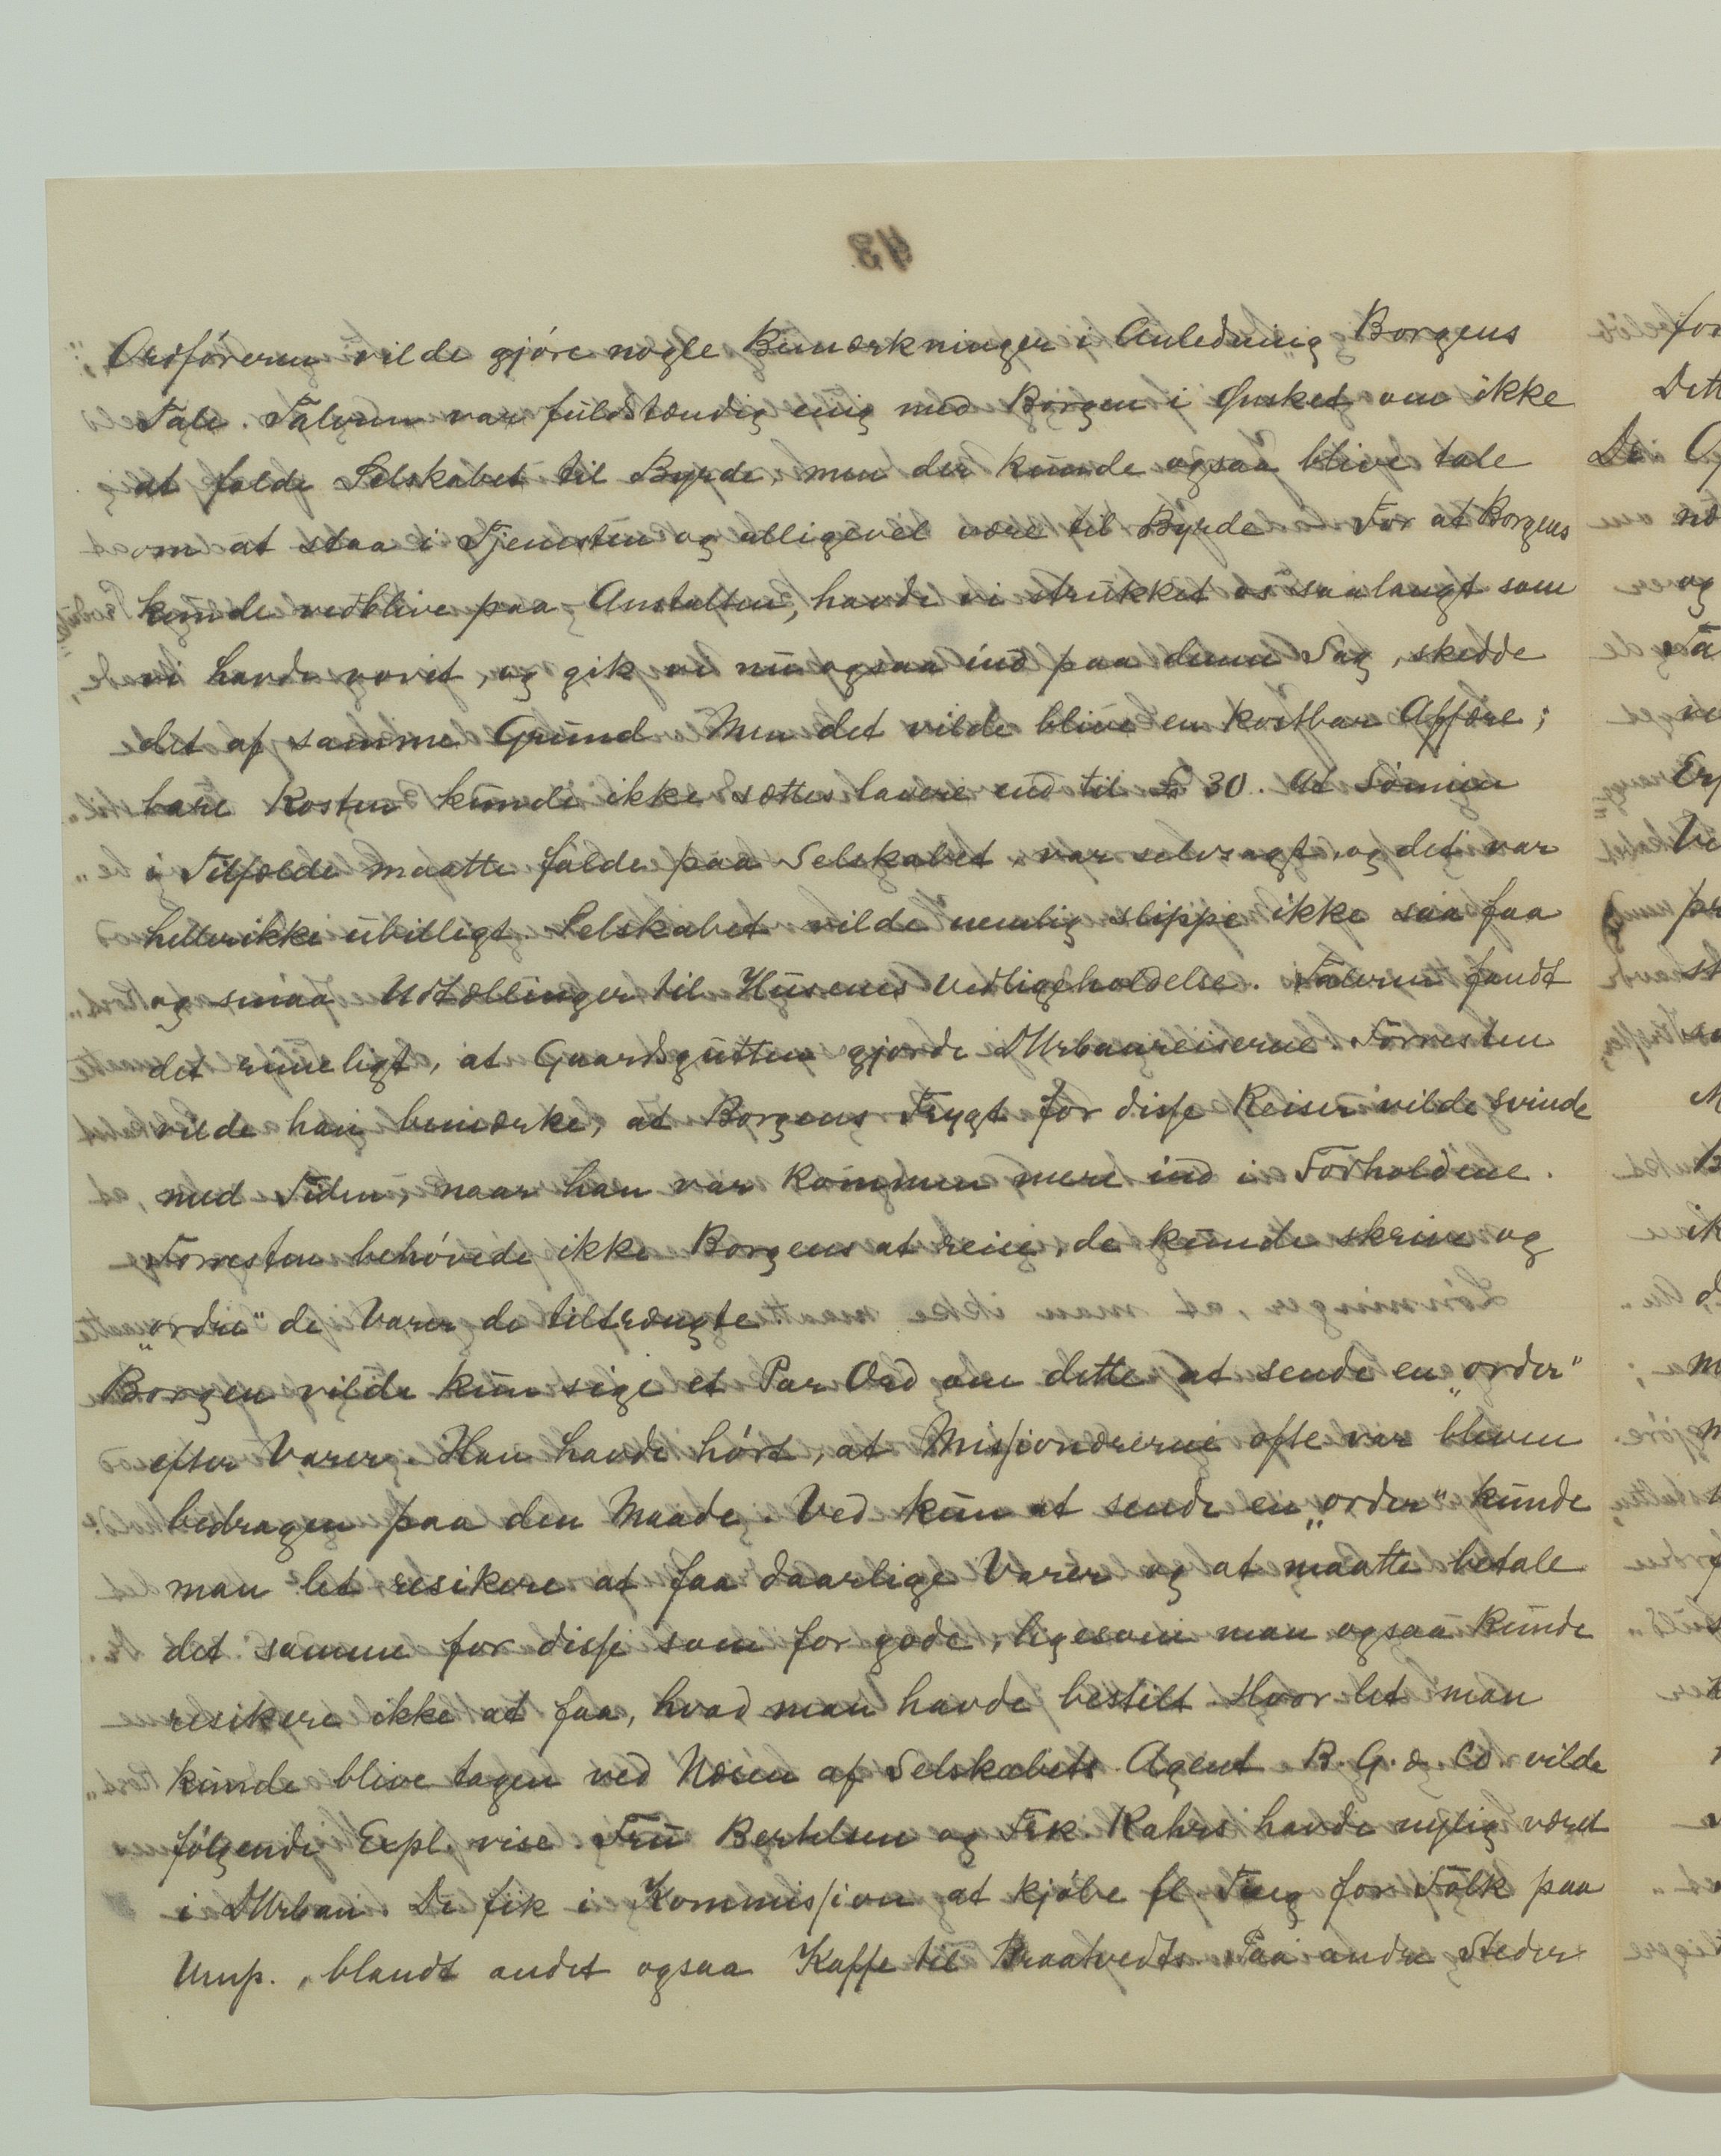 Ordføreren vilde gjøre nogle Bemærkninger i Anledning Borgens
Tale. Taleren var fuldstændig enig med Borgen i Ønsket om ikke
at falde Selskabet til Byrde, men der kunde ogsaa blive tale
om at staa i Tjenesten og alligevel være til Byrde For at Borgens
kunde vedblive paa Anstalten, havde vi strukket os saalangt som
vi havde vovet, og gik vi nu ogsaa ind paa denne Sag, skedde
det af samme Grund Men det vilde blive en kostbar Affære;
bare Kosten kunde ikke sættes lavere end til £ 30. At Sønnen
i Tilfælde maatte falde paa Selskabet, var selvsagt, og det var
hellerikke ubilligt. Selskabet vilde nemlig slippe ikke saa faa
og smaa Udtællinger til Husenes Vedligeholdelse. Taleren fandt
det rimeligt, at Gaardsgutten gjorde D'Urbanreiserne. Forresten
vilde han bemærke, at Borgens Frygt for disse Reiser vilde svinde
med Tiden, naar han var kommen mere ind i Forholdene.
Forresten behøvede ikke Borgens at reise, de kunde skrive og
"ordre" de Varer de tiltrængte
Borgen vilde kun sige et Par Ord om dette at sende en "order"
efter Varer. Han havde hørt, at Missionærerne ofte var bleven
bedragen paa den Maade. Ved kun at sende en "order" kunde
man let resikere at faa daarlige Varer og at maatte betale
det samme for disse som for gode, ligesom man ogsaa kunde
resikere ikke at faa, hvad man havde bestilt Hvor let man
kunde blive tagen ved Næsen af Selskabets Agent B. G. & Co. vilde
følgende Expl. vise. Fru Berthlsen og Frk. Rahrs havde nylig været
i D'Urban. De fik i Kommission at kjøbe fl. Ting for Folk paa
Ump., blandt andet ogsaa Kaffe til Braatvedts. Paa andre Steder